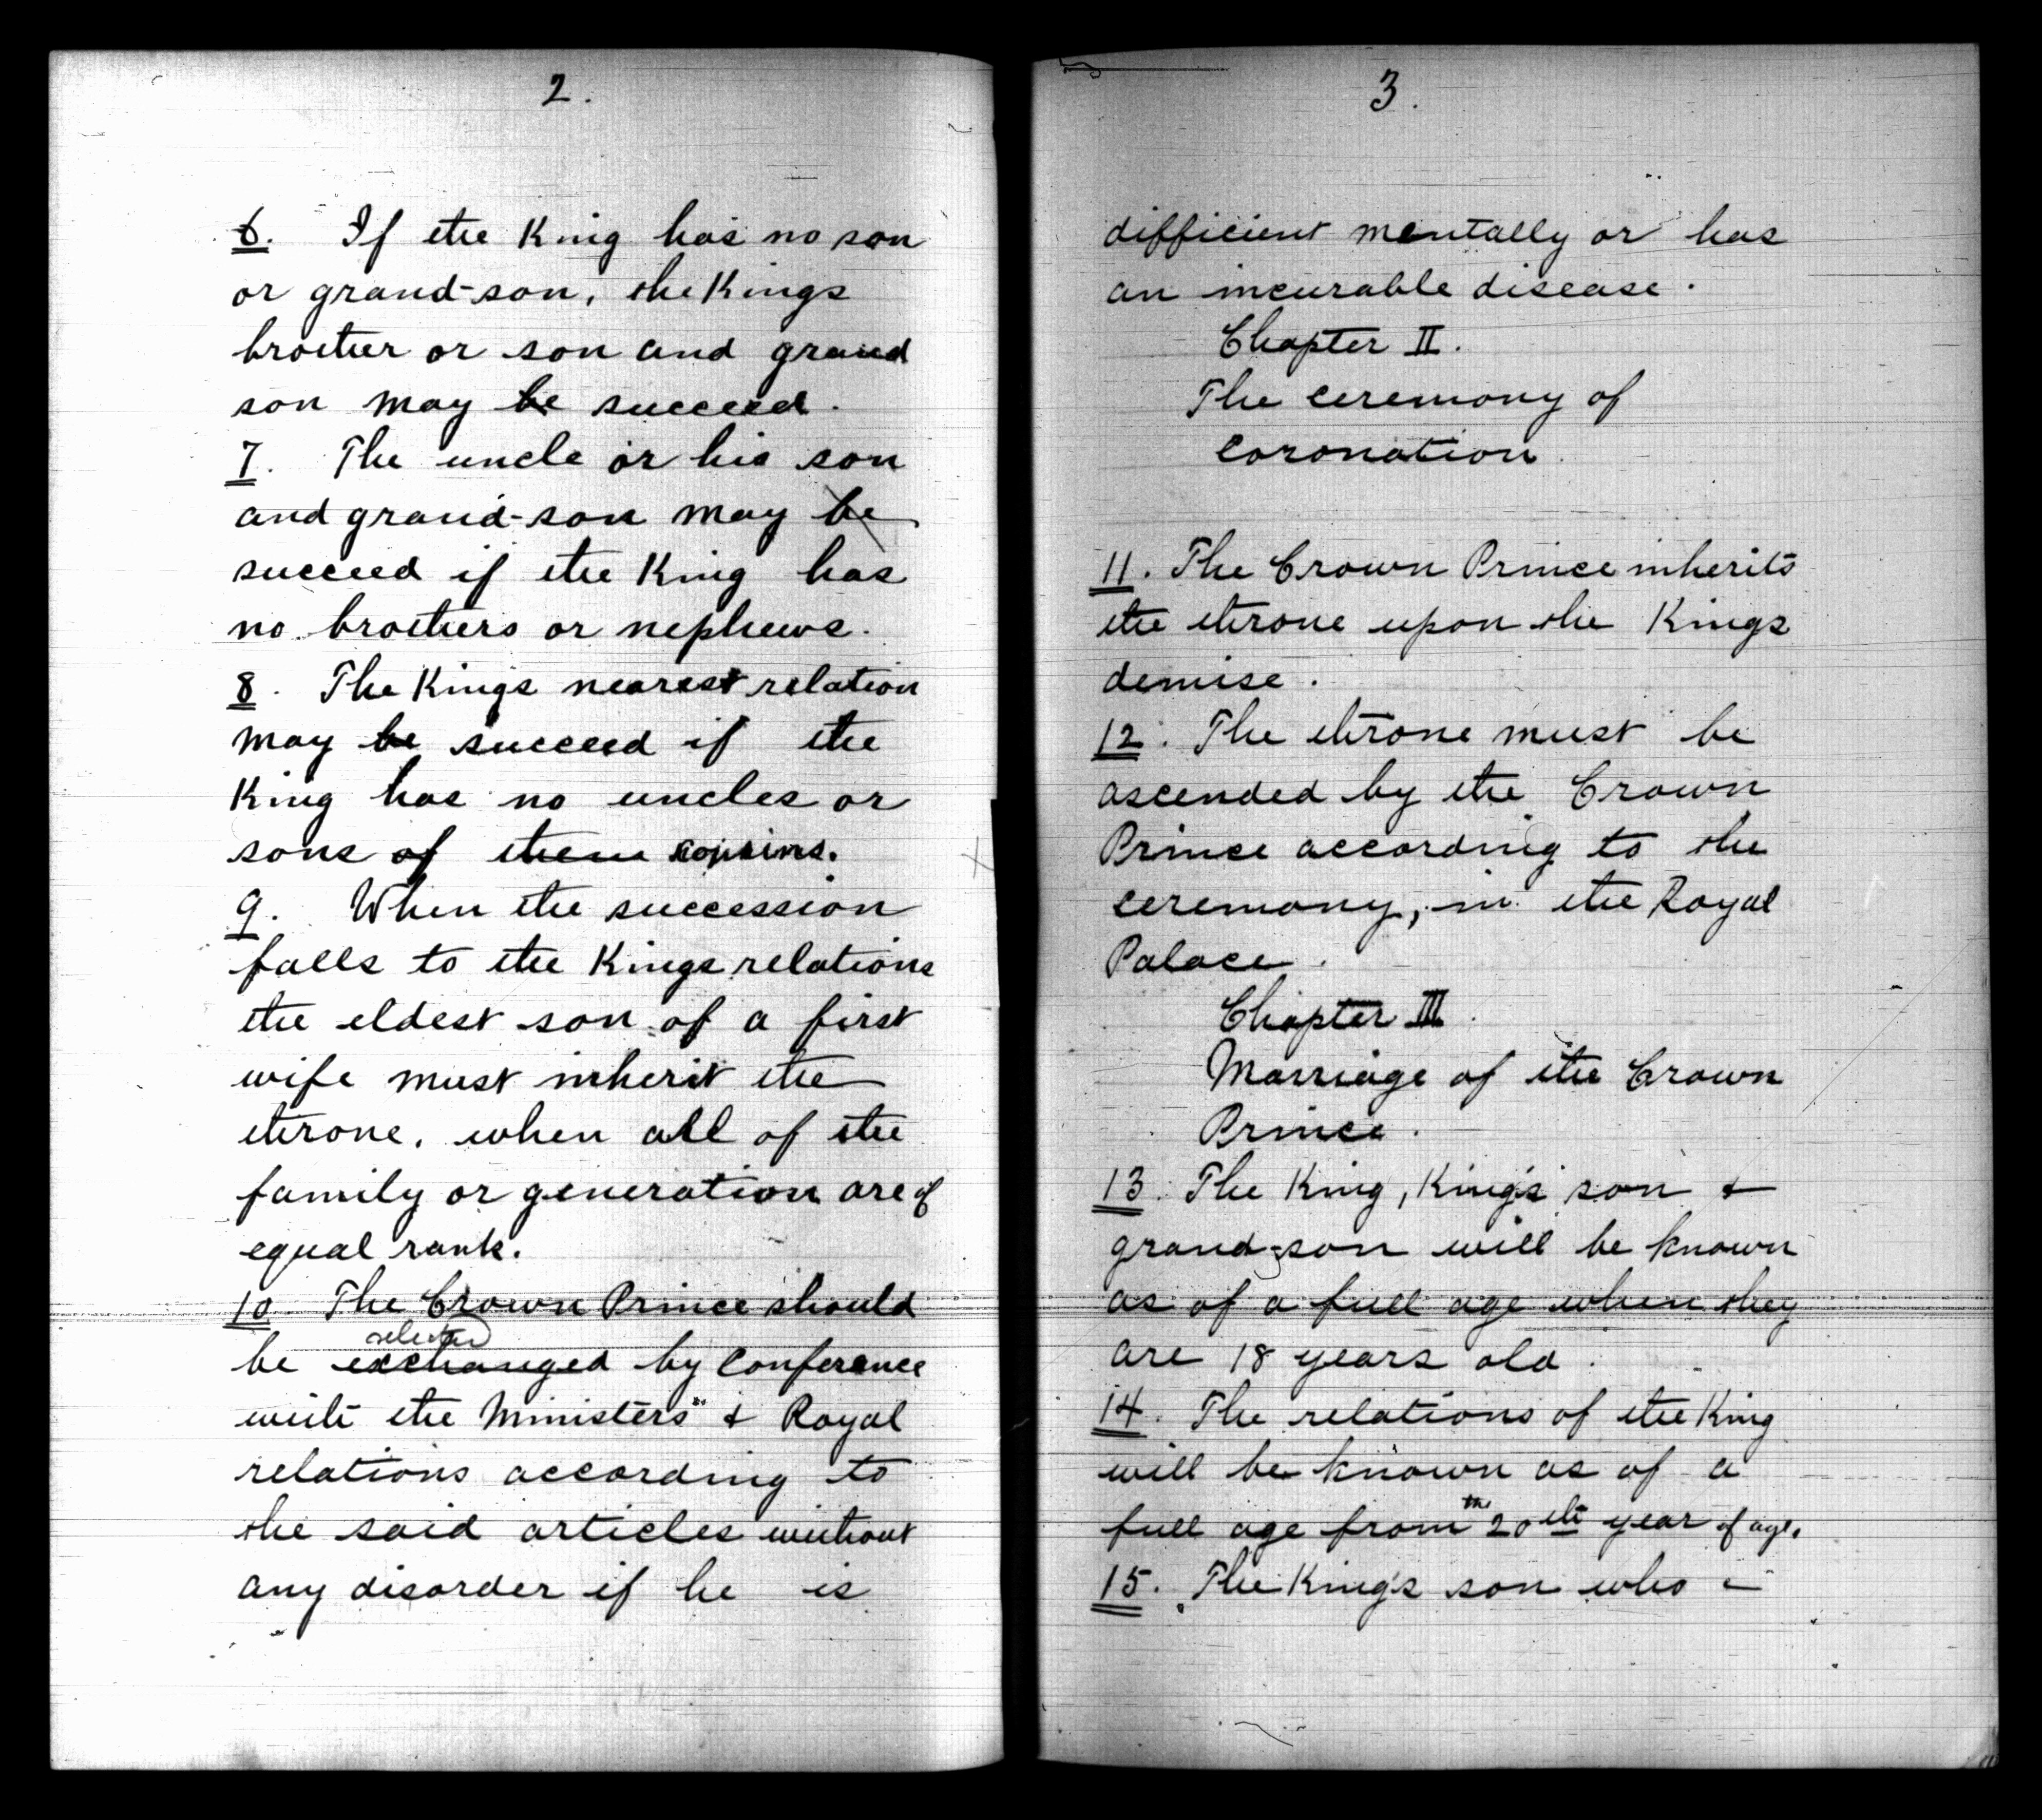 2.
6. If the King has no son
or grand-son, the Kings
brother or son and grand
son may be succeed.
7. The uncle or his son
and grand-son may be
succeed if the King has
no brothers or nephews.
8. The Kings nearest relation
may be succeed if the
King has no uncles or
sons of them cousins.
9. When the succession
falls to the Kings relations
the eldest son of a first
wife must inherit the
throne, when all of the
family or generation are of
equal rank.
10. The Crown Prince should
selected
be exchanged by conference
with the Ministers & Royal
relations according to
the said articles without
any disorder if he is
3.
difficient mentally or has
an incurable disease.
Chapter II.
The ceremony of
coronation.
11. The Crown Prince inherits
the throne upon the Kings
demise.
12. The throne must be
ascended by the Crown
Prince according to the
ceremony, in the Royal
Palace.
Chapter III.
Marriage of the Crown
Prince.
13. The King, King's son &
grand-son will be known
as of a full age when they
are 18 years old.
14. The relations of the King
will be known as of a
full age from the 20th year of age.
15. The King's son who